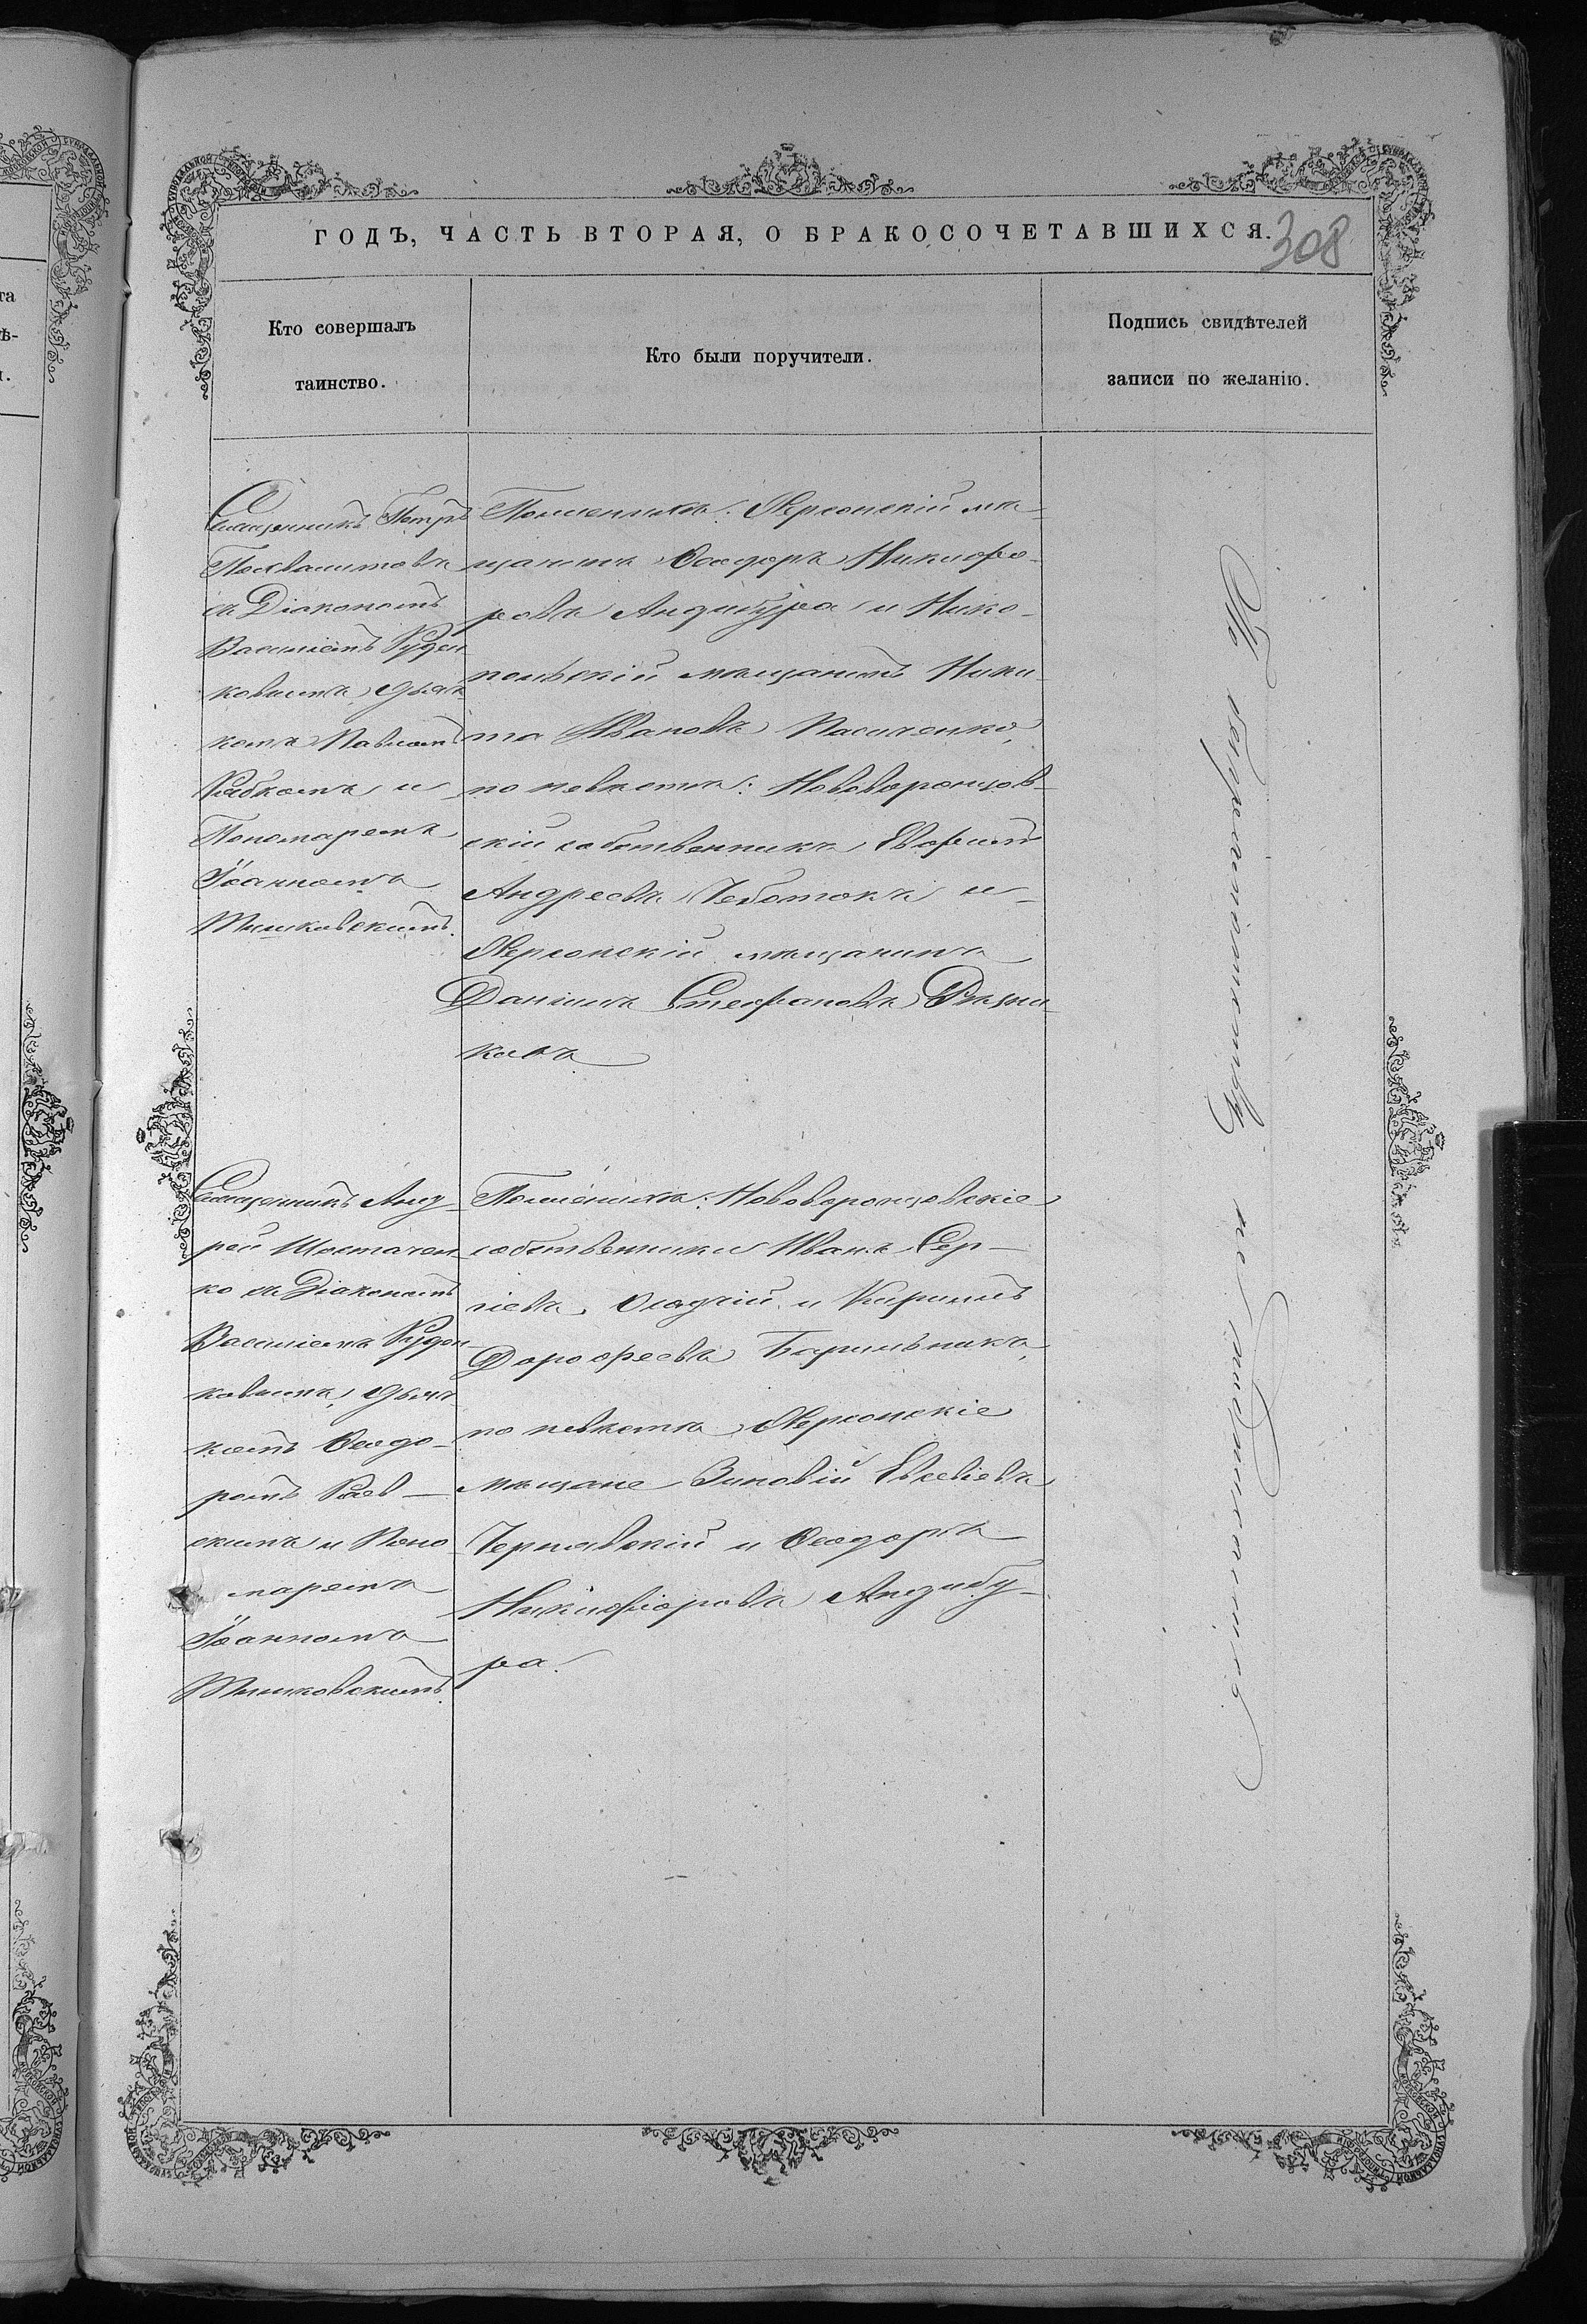 ГОДЪ, ЧАСТЬ ВТОРАЯ, О БРАКОСОЧЕТАВШИХСЯ.
308
Кто совершалъ
таинство.
Кто были поручители.
Подпись свидѣтелей
записи по желанію.
Священникъ Петръ
Похвалитовъ
съ Діакономъ
Василіемъ Руден
ковымъ, дьяч
комъ Павломъ
и
Пономаремъ
Іоанномъ
По женихѣ: Херсонскій мѣ-
щанинъ Ѳеодоръ Никифо-
ровъ Андибура и Нико-
польскій мѣщанинъ Ники-
та Ивановъ Пасиченко,
по невѣстѣ: Нововоронцов-
скій собственникъ Евфимій
Андреевъ Чеботокъ и
Херсонскій мѣщанинъ
Даніилъ Стефановъ Рѣзни-
ковъ
Священникъ Анд-
рей Шостачен-
ко съ Діакономъ
Василіемъ Руден-
ковымъ, дьяч
комъ Ѳеодо-
ромъ Раев-
скимъ и Поно-
маремъ
Іоанномъ
По женихѣ: Нововоронцовскіе
собственники Иванъ Сер-
гіевъ Осадчій и Кириллъ
Дорофеевъ Барильникъ,
по невѣстѣ Херсонскіе
мѣщане Зиновій Евсевіевъ
Чернявскій и Ѳеодоръ
Никифоровъ Андибу-
ра.
По безграмотству не подписались